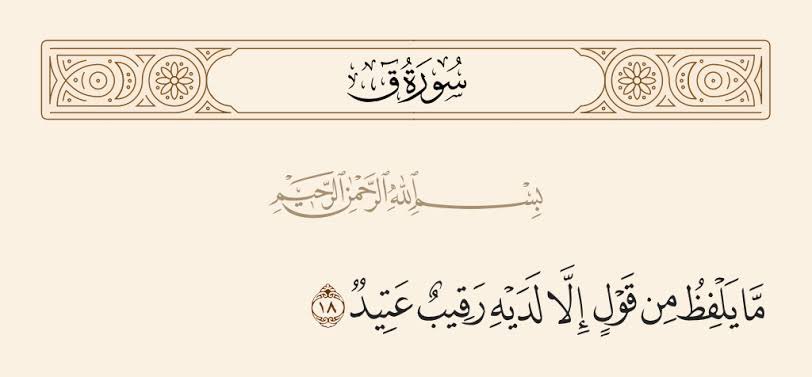 سُورَةُ قٓ
بِسْمِ ٱللَّهِ ٱلرَّحْمَٰنِ ٱلرَّحِيمِ
مَّا يَلْفِظُ مِن قَوْلٍ إِلَّا لَدَيْهِ رَقِيبٌ عَتِيدٌ ١٨